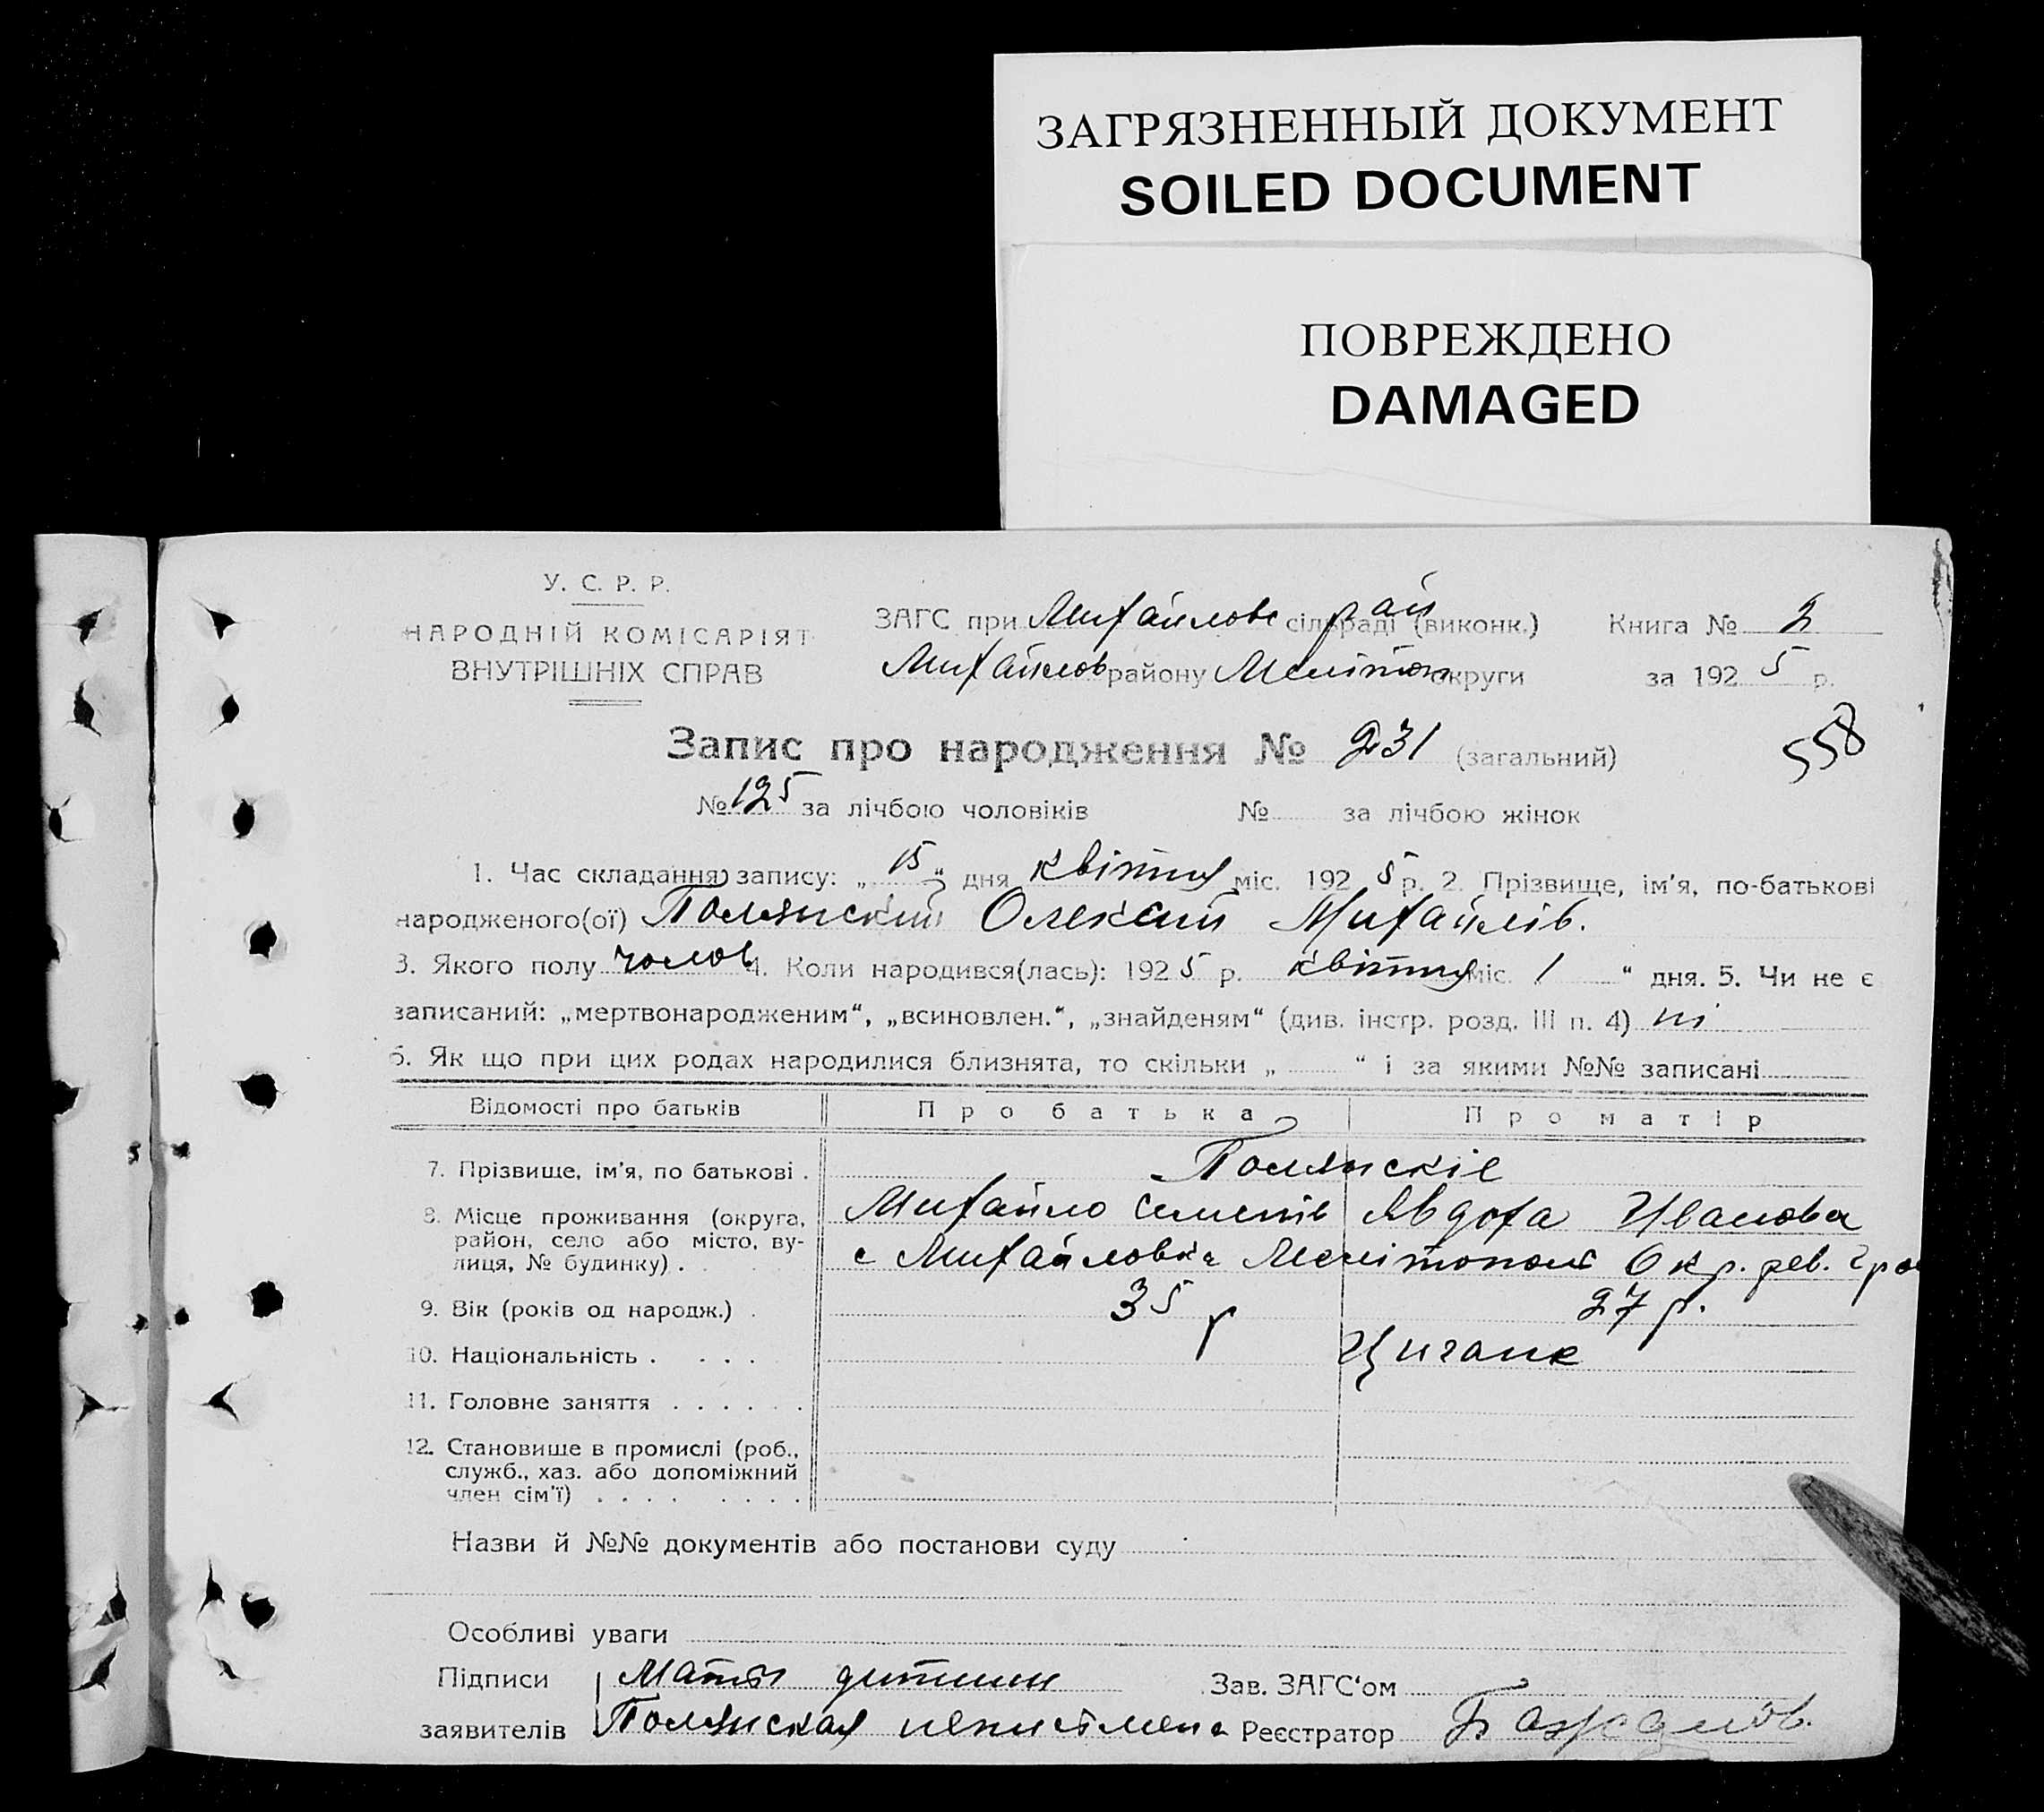 ЗАГРЯЗНЕННЫЙ ДОКУМЕНТ
SOILED DOCUMENT
ПОВРЕЖДЕНО
DAMAGED
У. С. Р. Р.
НАРОДНІЙ КОМІСАРІЯТ
ВНУТРІШНІХ СПРАВ
ЗАГС при Михайлове рай сільраді (виконк.) Книга № 2
Михайлов району Мелітоп округи за 192 5 р.
Запис про народження № 231 (загальний)
558
№ 125 за лічбою чоловіків № за лічбою жінок
1. Час складання запису: „ 15 “ дня квітня міс. 192 5 р. 2. Прізвище, ім'я, по-батькові
народженого(ої) Полянский Олексий Михайлів.
3. Якого полу чолов 4. Коли народився(лась): 192 5 р. квітня міс. 1 “ дня. 5. Чи не є
записаний: „мертвонародженим“, „всиновлен.“, „знайденям“ (див. інстр. розд. III п. 4) ні
6. Як що при цих родах народилися близнята, то скільки „ “ і за якими №№ записані
Відомості про батьків Про батька Про матір
7. Прізвище, ім'я, по батькові . Полянскіе
Михайло Семенів Явдоха Иванова
8. Місце проживання (округа, район, село або місто, вулиця, № будинку) . с Михайловка Мелітопол Окр. рев.
9. Вік (років од народж.) . 35 р 27 р.
10. Національність . . . . Цигане
11. Головне заняття . . . . . .
12. Становище в промислі (роб.,
служб., хаз. або допоміжний
член сім'ї) . . . . . . . .
Назви й №№ документів або постанови суду
Особливі уваги
Підписи Мати дитини Зав. ЗАГС'ом
заявителів Полянская неписмена Реєстратор